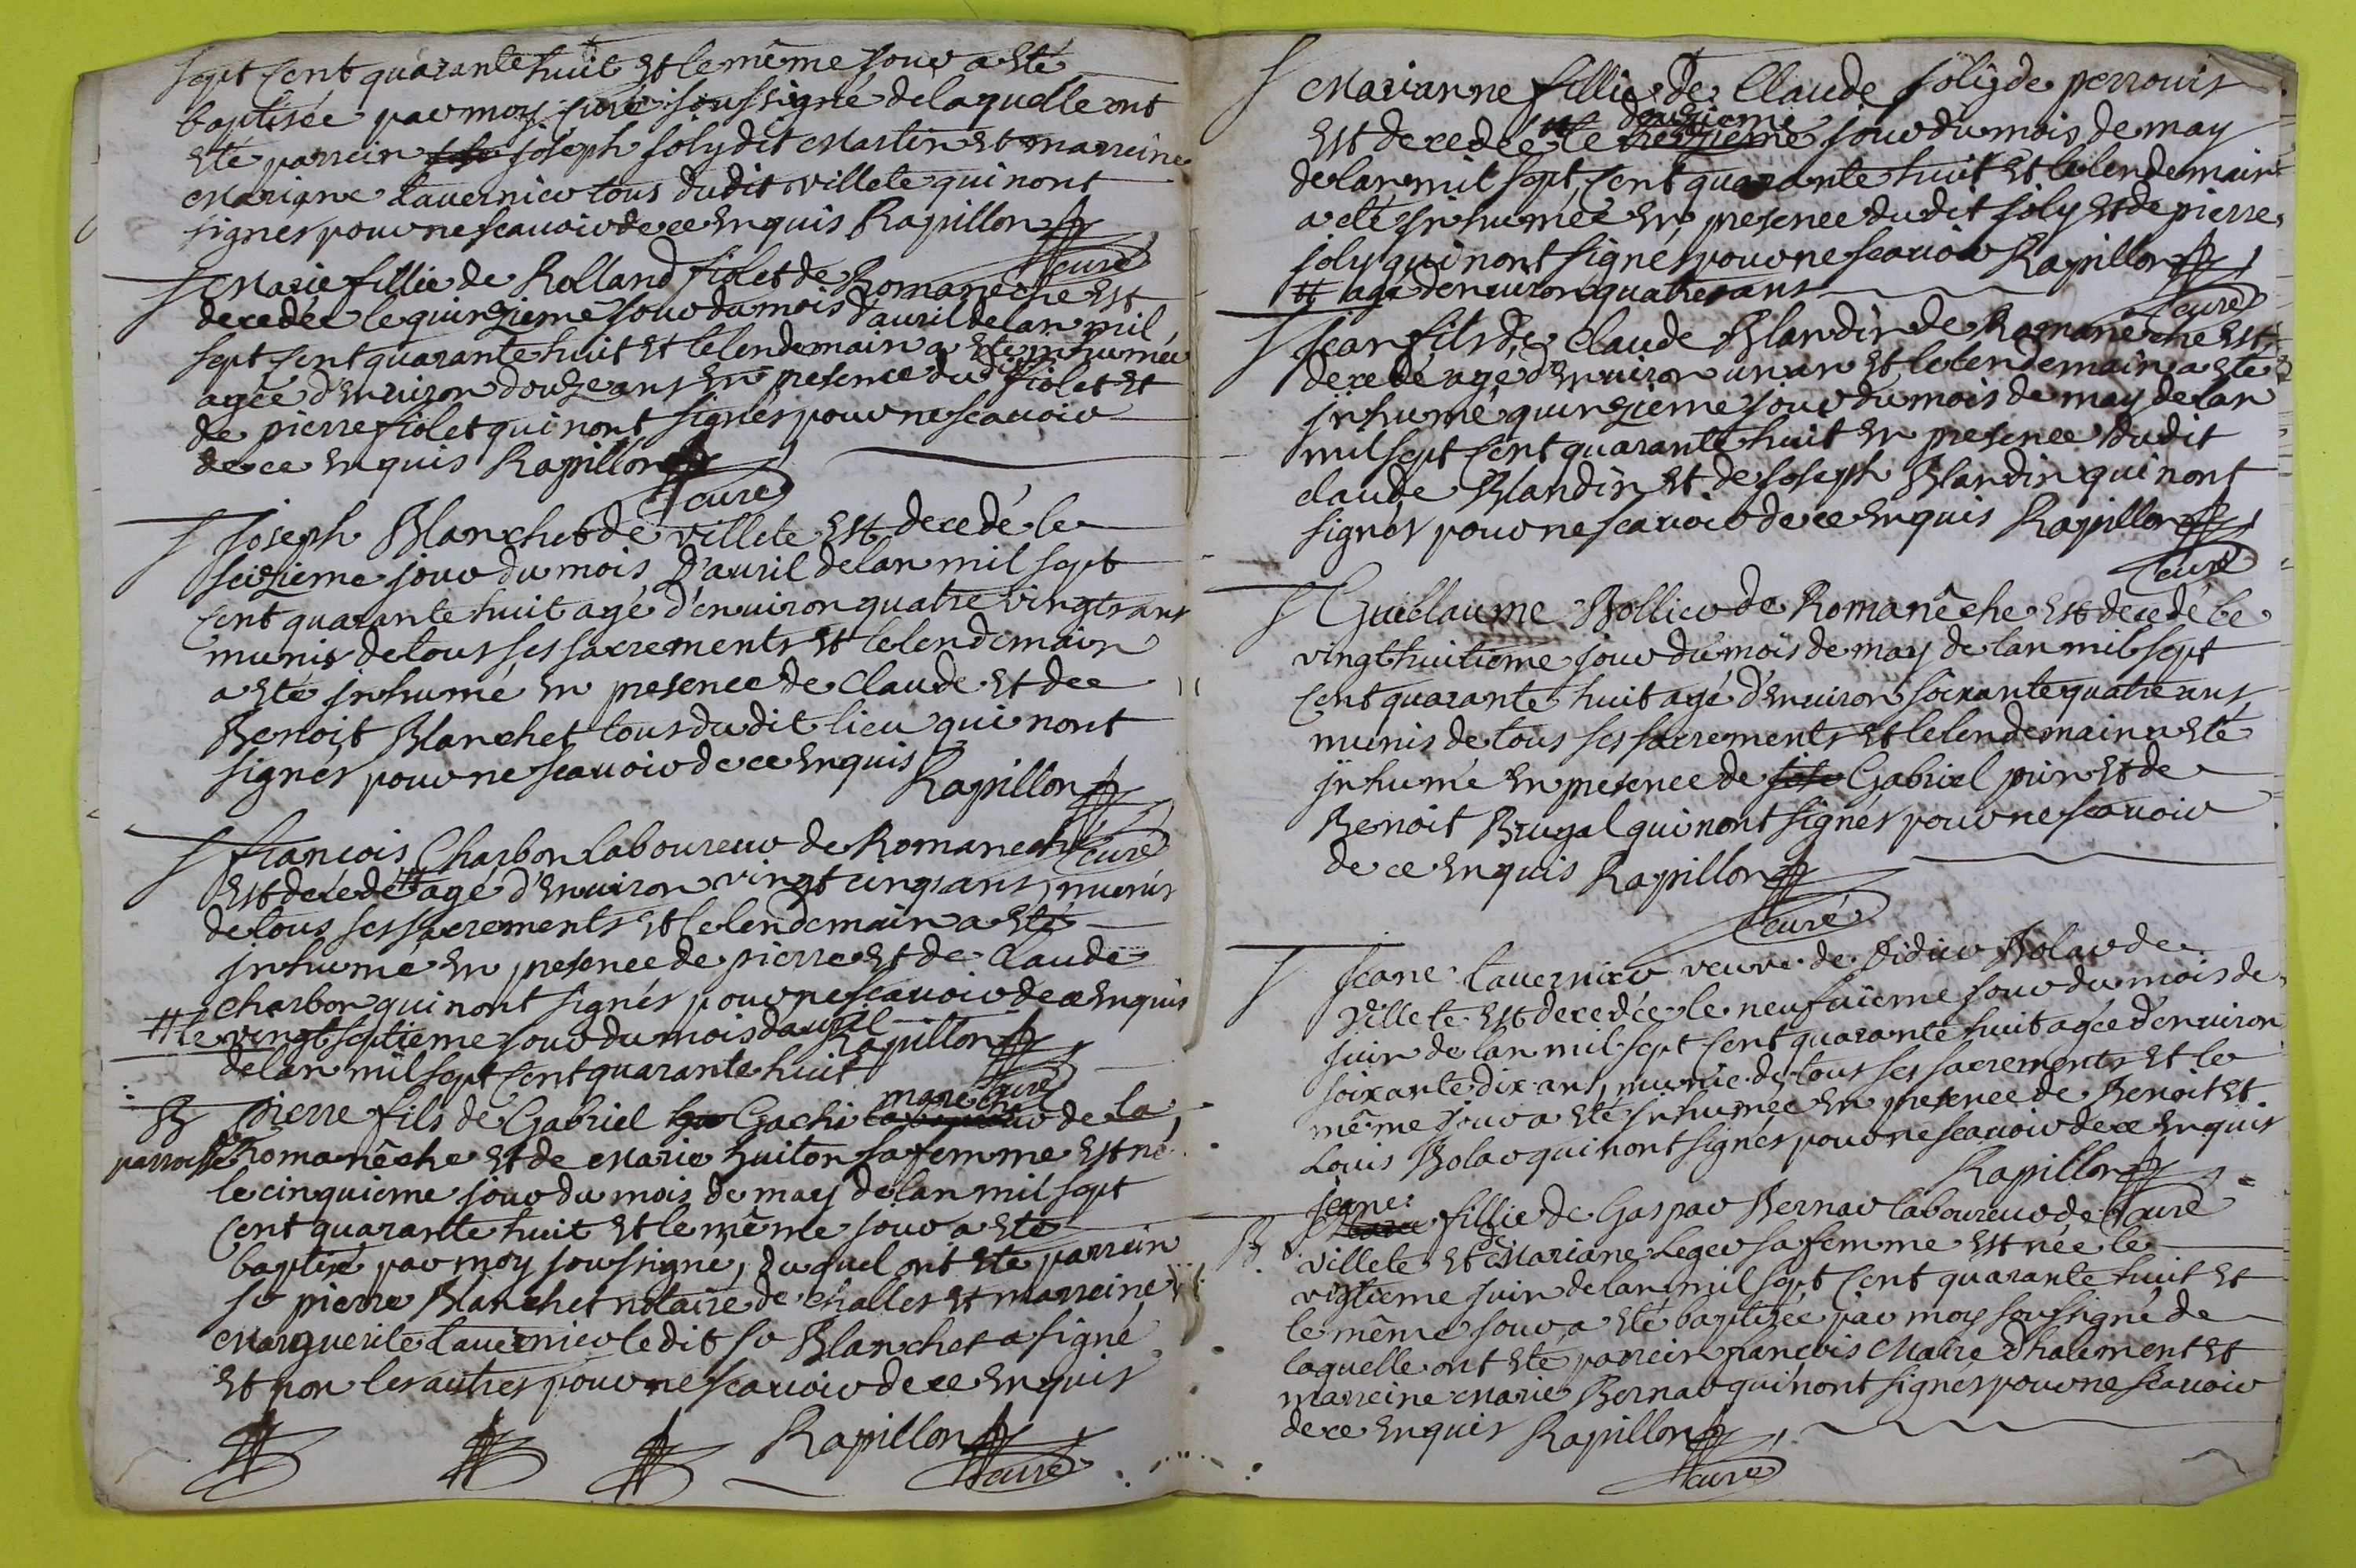 sept cent quarante huit et le même jour a eté
baptisée par moy curé soussigné de laquelle ont
eté parrein joseph joly dit Martin et marreine
Mariane tavernier tous dudit villete qui n'ont
signés pour ne scavoir de ce enquis Rapillon
curé
S Marie fillie de Rolland fiolet de Romanêche est
decedée le quinzieme jour du mois d'avril de lan mil
sept cent quarante huit et le lendemain a eté inhumée
agée d'environ douze ans en presence dudit fiolet et
de pierre fiolet qui n'ont signés pour ne scavoir
de ce enquis Rapillon
curé
S Joseph Blanchet de villete est decedé le
seizieme jour du mois d'avril de lan mil sept
cent quarante huit agé d'environ quatre vingts ans
munis de tous ses sacrements et le lendemain
a eté inhumé en presence de Claude et de
Benoit Blanchet tous dudit lieu qui n'ont
signés pour ne scavoir de ce enquis
Rapillon
curé
S francois Charbon laboureur de Romaneche
est decedé # agé d'environ vingt cinq ans, munis
de tous ses sacrements et le lendemain a eté
inhumé en presence de pierre et de Claude
Charbon qui n'ont signés pour ne scavoir de ce enquis
# le vingt septieme jour du mois d'avril Rapillon
de lan mil sept cent quarante huit
curé
maneche
B pierre fils de Gabriel Gachi de la
parroisse de Romanêche et de Marie huiton sa femme est né
le cinquieme jour du mois de may de lan mil sept
cent quarante huit et le même jour a eté
baptisé par moy soussigné, du quel ont eté parrein
sr pierre Blanchet notaire de challes et marreine
Marguerite tavernier ledit sr Blanchet a signé
et non les autres pour ne scavoir de ce enquis
Rapillon
curé
S Marianne fillie de Claude joly de perrouis
douzieme
est decedée # le treizieme jour du mois de may
de lan mil sept cent quarante huit et le lendemain
a eté inhumée en presence dudit joly et de pierre
joly qui n'ont signés pour ne scavoir Rapillon
# agé d'environ quatre ans
curé
S jean fils de Claude Blandin de Romanêche est
decedé agé d'environ un an et le lendemain a eté
inhumé quinzieme jour du mois de may de lan
mil sept cent quarante huit en presence dudit
claude Blandin et de Joseph Blandin qui n'ont
signés pour ne scavoir de ce enquis Rapillon
curé
S Guillaume Bollier de Romanêche est decedé le
vingt huitieme jour du mois de may de lan mil sept
cent quarante huit agé d'environ soixante quatre ans,
munis de tous ses sacrements et le lendemain a eté
inhumé en presence de Gabriel prin et de
Benoit Brugal qui n'ont signés pour ne scavoir
de ce enquis Rapillon
curé
S Jeane tavernier veuve de Didier Bolar de
villete est decedée le neufvieme jour du mois de
juin de lan mil sept cent quarante huit agée d'environ
soixante dix ans, munie de tous ses sacrements et le
même jour a eté inhumée en presence de Benoit et
Louis Bolar qui n'ont signés pour ne scavoir de ce enquis
Rapillon
curé
jeane
B fillie de Gaspar Bernar laboureur de
villete et de Mariane Leger sa femme est née le
vigtieme juin de lan mil sept cent quarante huit et
le même jour a eté baptizée par moy soussigné de
laquelle ont eté parrein francois Maire d'halement et
marreine Marie Bernar qui n'ont signés pour ne scavoir
de ce enquis Rapillon
curé